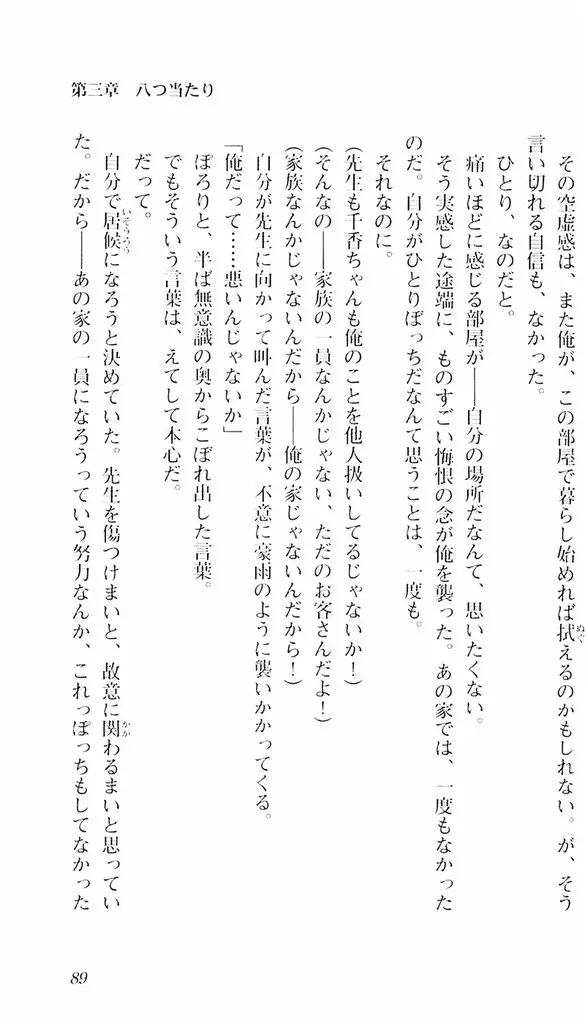 第三章　八つ当たり
　その空虚感は、また俺が、この部屋で暮らし始めれば拭えるのかもしれない。が、そう
言い切れる自信も、なかった。
　ひとり、なのだと。
　痛いほどに感じる部屋が――自分の場所だなんて、思いたくない。
　そう実感した途端に、ものすごい悔恨の念が俺を襲った。あの家では、一度もなかった
のだ。自分がひとりぼっちだなんて思うことは、一度も。
　それなのに。
（先生も千香ちゃんも俺のことを他人扱いしてるじゃないか！）
（そんなの――家族の一員なんかじゃない、ただのお客さんだよ！）
（家族なんかじゃないんだから――俺の家じゃないんだから！）
　自分が先生に向かって叫んだ言葉が、不意に豪雨のように襲いかかってくる。
「俺だって……悪いんじゃないか」
　ぽろりと、半ば無意識の奥からこぼれ出した言葉。
　でもそういう言葉は、えてして本心だ。
　だって。
　自分で居候になろうと決めていた。先生を傷つけまいと、故意に関わるまいと思ってい
た。だから――あの家の一員になろうっていう努力なんか、これっぽっちもしてなかった
ぬぐ
いそうろう
かか
89